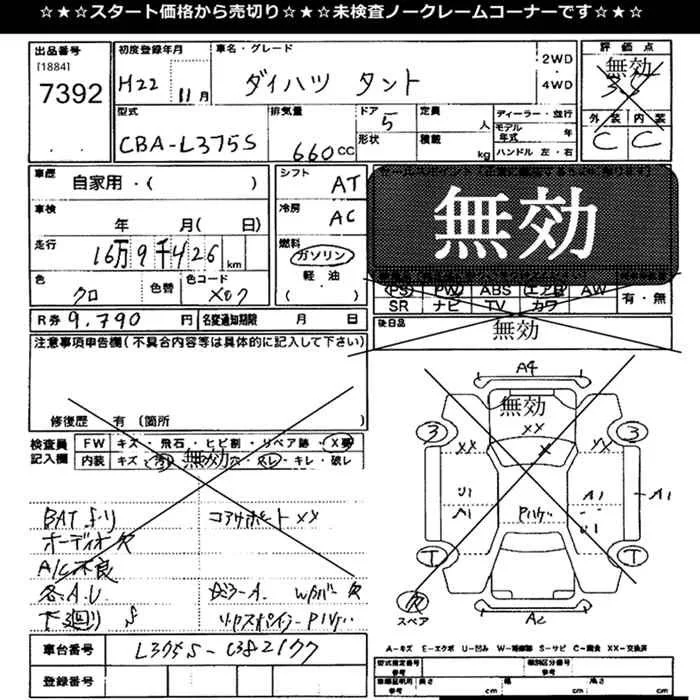 ☆★☆スタート価格から売切り☆★☆未検査ノークレームコーナーです☆★☆
出品番号
[1884]
7392
初度登録年月
H22 11月
車名・グレード
ダイハツ タント
2WD
・
4WD
評価点
無効
3.5
外装 内装
C C
型式
CBA-L375S
排気量
660cc
ドア
5
形状
定員
人
積載
kg
ディーラー・並行
モデル年式 年
ハンドル 左・右
車歴
自家用・( )
車検
年 月( 日)
走行
16万9千426km
色
クロ
色替
色コード
シフト
AT
冷房
AC
燃料
ガソリン
軽油
( )
無効
PS PW ABS エアB AW
SR ナビ TV カワ
有・無
R券 9,790 円
名変通知期限 月 日
後日品
無効
注意事項申告欄(不具合内容等は具体的に記入して下さい)
修復歴 有(箇所 )
検査員記入欄
FW キズ・飛石・ヒビ割・リペア跡・X要
内装 キズ・汚レ・無効穴・スレ・キレ・破レ
BAT ナリ コアサポートXX
オーディオ欠
A/C不良
各A.U
下廻りS
A4
無効
3 3
XX XX XX
X
U1 A1
A1 U1
A1
T T
欠
スペア
A2
A-キズ E-エクボ U-凹み W-補修跡 S-サビ C-腐食 XX-交換済
車台番号
L375S-0382177
登録番号
型式指定番号
参考
類別区分番号
参考
長さ cm
幅 cm
高さ cm